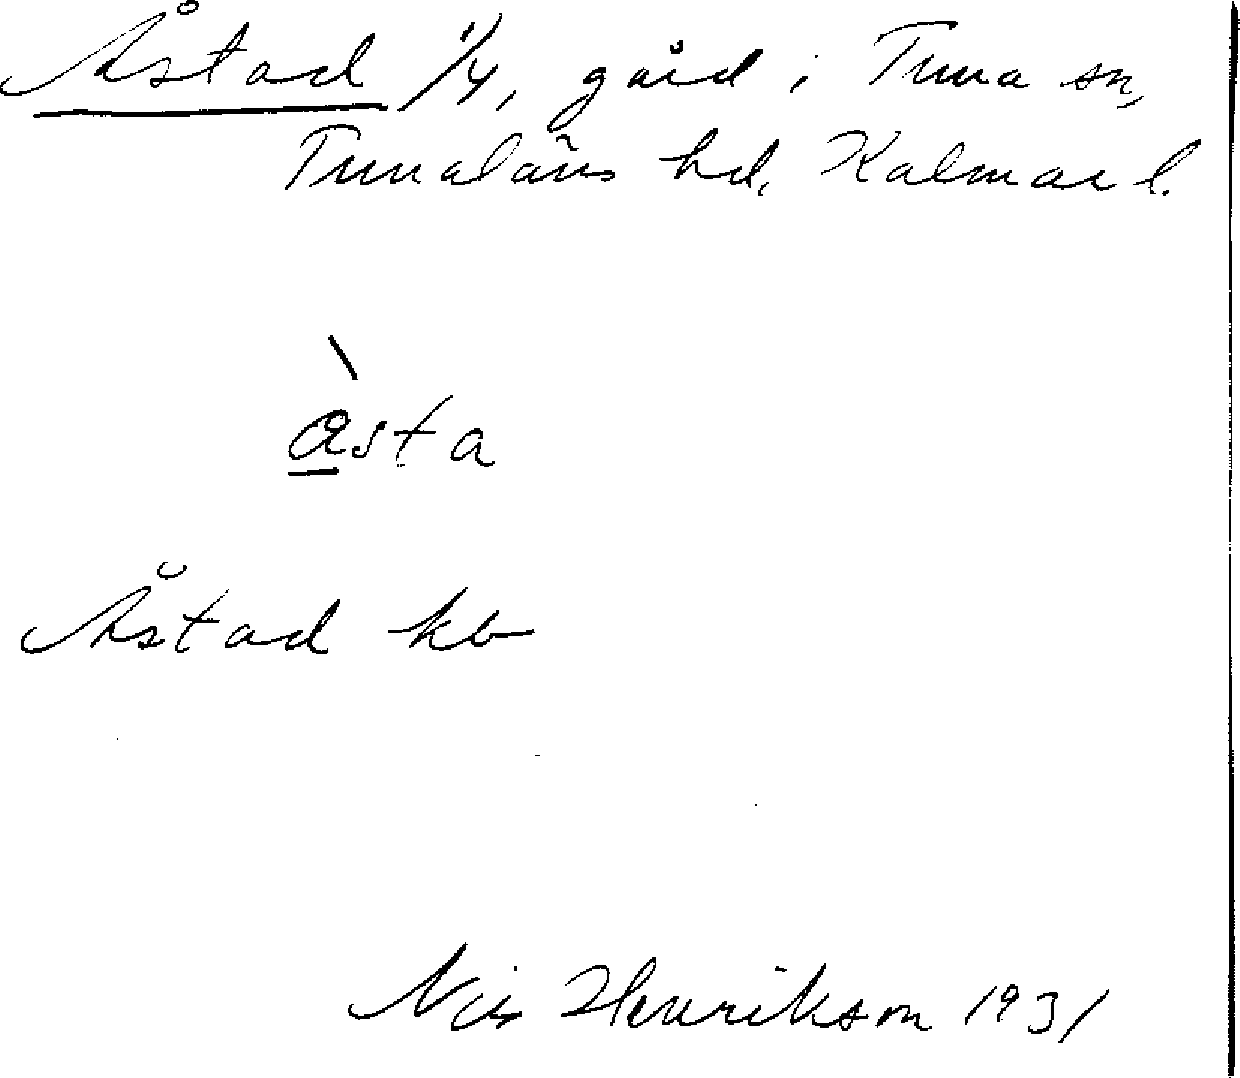 Åstad 1/4, gård i Tuna sn,
Tunaläns hd, Kalmar l.
àsta
Åstad kb
Nils Henrikson 1931